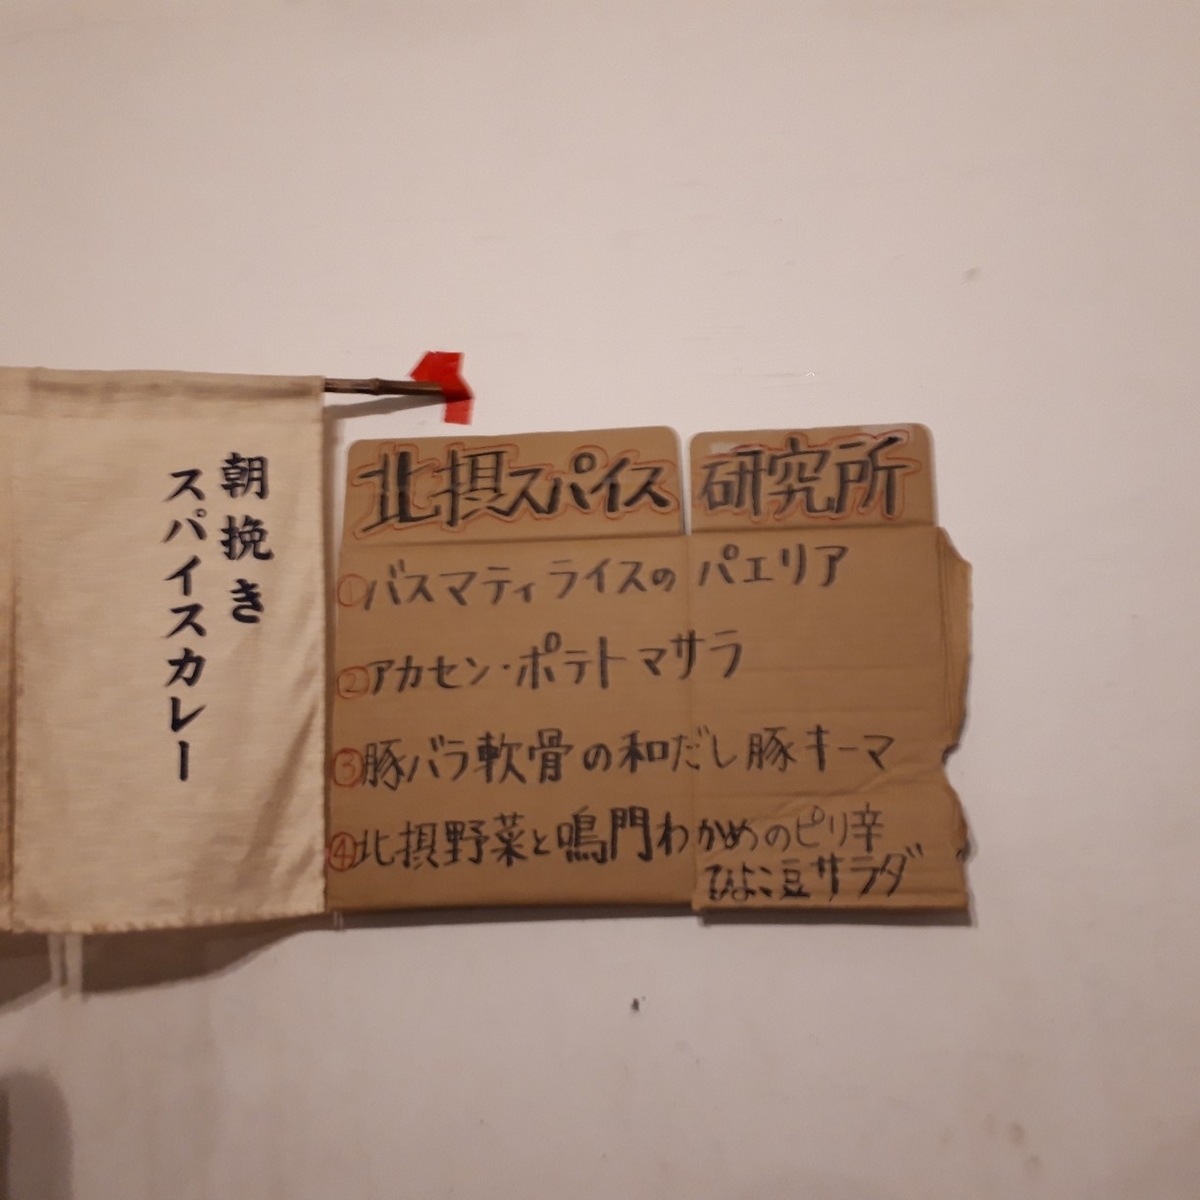 朝挽き
スパイスカレー
北摂スパイス研究所
①バスマティライスのパエリア
②アカセン・ポテトマサラ
③豚バラ軟骨の和だし豚キーマ
④北摂野菜と鳴門わかめのピリ辛
ひよこ豆サラダ